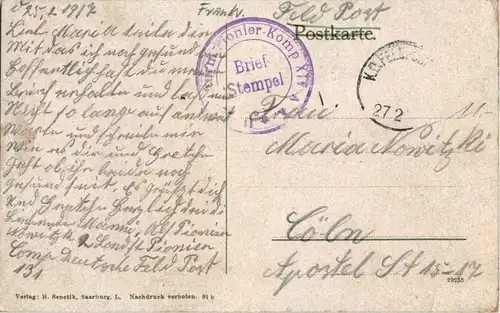 25.2 1917
Frankr.
Feld Post
Postkarte.
Liebe Maria teile dir
Mit das ich noch gesund
hoffentlich hast du mein
Brief erhalten und las mich
Nicht so lange auf antwort
Warten und schreibe mir
Wie es dir und Gretchen
Geht ob ihr beide noch
Gesund seit. es grüßt dich
und Gretchen Herzlich dein lieber
Pionier
Landst Pionier
Comp Deutsche Feld Post
131
Pionier-Komp XIV A
Brief-
Stempel
K.D. FELDPOST
27 2
Frau
Maria Nowitzki
Cöln
Apostel St 15-17
Verlag: H. Senetik, Saarburg, L. Nachdruck verboten. 91 b